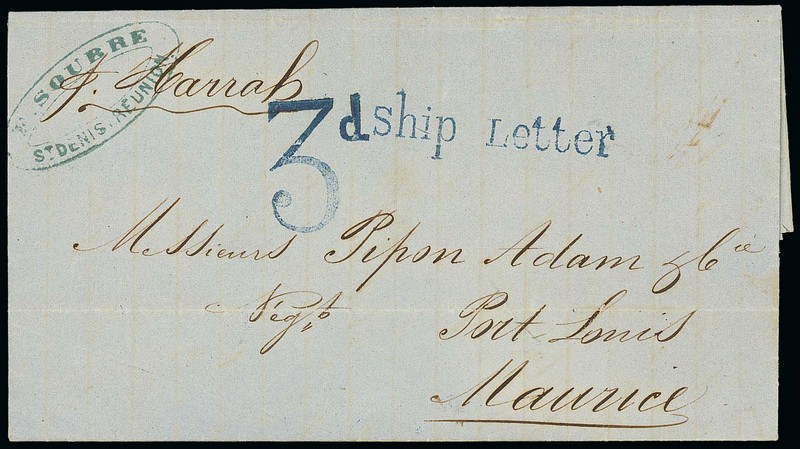 SQUBRE
ST DENIS. RÉUNION
p. Harrah
3d Ship Letter
Messieurs Pipon Adam & Cie
Négts
Port Louis
Maurice